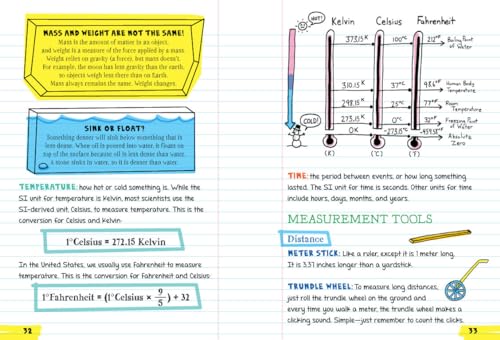 MASS AND WEIGHT ARE NOT THE SAME!
Mass is the amount of matter in an object,
and weight is a measure of the force applied by a mass.
Weight relies on gravity (a force), but mass doesn't.
For example, the moon has less gravity than the earth,
so objects weigh less there than on Earth.
Mass always remains the same. Weight changes.
SINK OR FLOAT?
Something denser will sink below something that is
less dense. When oil is poured into water, it floats on
top of the surface because oil is less dense than water.
A stone sinks in water, so it is denser than water.
TEMPERATURE: how hot or cold something is. While the
SI unit for temperature is Kelvin, most scientists use the
SI-derived unit, Celsius, to measure temperature. This is the
conversion for Celsius and Kelvin:
1°Celsius = 272.15 Kelvin
In the United States, we usually use Fahrenheit to measure
temperature. This is the conversion for Fahrenheit and Celsius:
1°Fahrenheit = (1°Celsius × 9/5) + 32
32
HOT!
Kelvin Celsius Fahrenheit
373.15 K 100°C 212°F Boiling Point
of Water
310.15 K 37°C 98.6°F Human Body
Temperature
298.15 K 25°C 77°F Room
Temperature
273.15 K 0°C 32°F Freezing Point
of Water
COLD!
0 K -273.15°C -459.58°F Absolute
Zero
(K) (°C) (°F)
TIME: the period between events, or how long something
lasted. The SI unit for time is seconds. Other units for time
include hours, days, months, and years.
MEASUREMENT TOOLS
Distance
METER STICK: Like a ruler, except it is 1 meter long.
It is 3.37 inches longer than a yardstick.
TRUNDLE WHEEL: To measure long distances,
just roll the trundle wheel on the ground and
every time you walk a meter, the trundle wheel makes a
clicking sound. Simple—just remember to count the clicks.
33